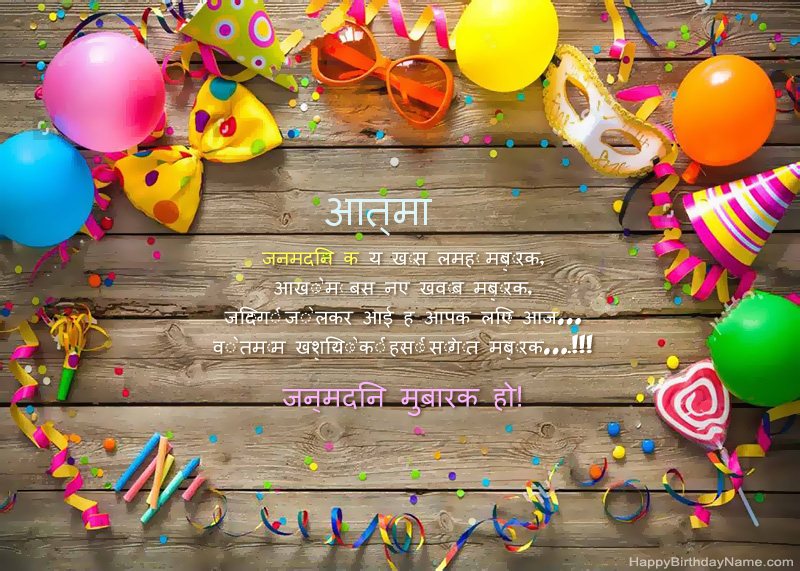 आत्मा
जनमदिन क य ख ास लमह मब ारक,
आख ो म बस नए खव ाब मब ारक,
जिदग ी ज ो लकर आई ह आपक लिए आज...
व ो तम ाम खश ियो क ी हस ी स ौग ात मब ारक....!!!
जन्मदिन मुबारक हो!
HappyBirthdayName.com